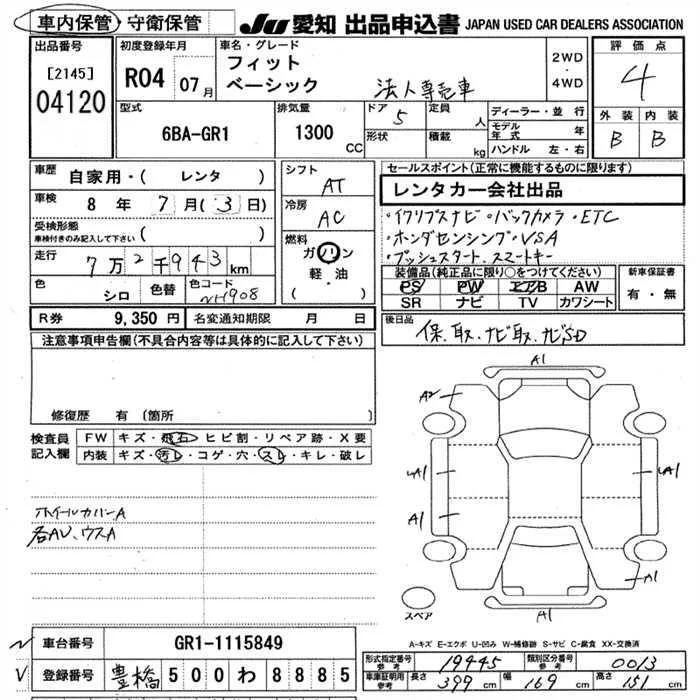 車内保管・守衛保管
JU 愛知 出品申込書 JAPAN USED CAR DEALERS ASSOCIATION
出品番号
[2145]
04120
初度登録年月
R04 07月
車名・グレード
フィット
ベーシック
法人専売車
2WD
・
4WD
評価点
4
外装 内装
B B
型式
6BA-GR1
排気量
1300
CC
ドア
5
形状
定員
人
積載
kg
ディーラー・並行
モデル年式 年
ハンドル 左・右
車歴
自家用・( レンタ )
車検
8 年 7 月(3日)
受検形態
車検付きのみ記入して下さい ( )
走行
7万2千943km
色
シロ
色替
色コード
NH908
シフト
AT
冷房
AC
燃料
ガソリン
軽・油
( )
セールスポイント(正常に機能するものに限ります)
レンタカー会社出品
・イクリプスナビ・バックカメラ・ETC
・ホンダセンシング・VSA
・プッシュスタート.スマートキー
装備品(純正品に限り○をつけてください)
PS PW エアB AW
SR ナビ TV カワシート
新車保証書
有・無
R券 9,350円 名変通知期限 月 日
後日品
保.取.ナビ取.ナビSD
注意事項申告欄(不具合内容等は具体的に記入して下さい)
修復歴 有(箇所
検査員記入欄
FW キズ・飛石・ヒビ割・リペア跡・X要
内装 キズ・汚レ・コゲ・穴・スレ・キレ・破レ
ホイールカバーA
各AU、ウスA
A1
A2
A1
A1
A1
A1
A1
スペア
A-キズ E-エクボ U-凹み W-補修跡 S-サビ C-腐食 XX-交換済
車台番号 GR1-1115849
登録番号 豊橋 500 わ 8885
形式指定番号 参考 19445 類別区分番号 参考 0013
車庫証明用 参考 長さ 399 cm 幅 169 cm 高さ 151 cm